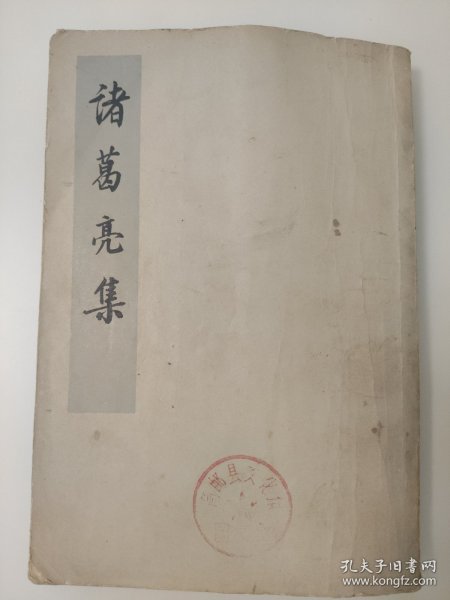 諸葛亮集
孔夫子旧书网
www.kongfz.com